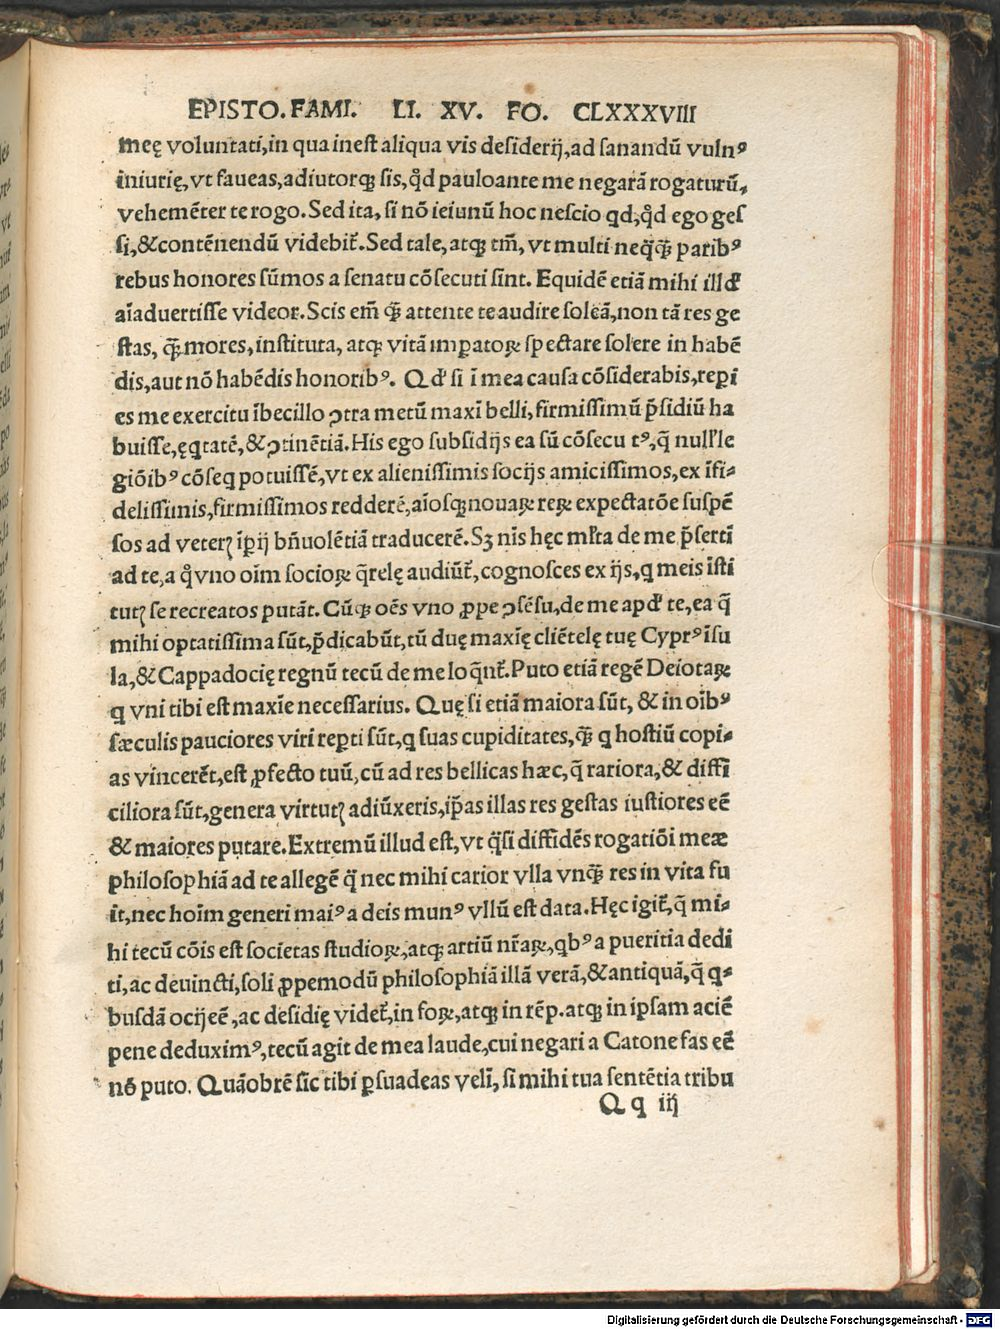 EPISTO. FAMI. LI. XV. FO. CLXXXVIII
meę voluntati, in qua inest aliqua vis desiderij, ad sanandū vulnꝰ
iniurię, vt faueas, adiutorqꝫ sis, qd̓ pauloante me negarā rogaturū,
vehemēter te rogo. Sed ita, si nō ieiunū hoc nescio qd, qd̓ ego ges
si, & contēnendū videbit̄. Sed tale, atqꝫ tm̄, vt multi neq̄q̄ꝫ paribꝰ
rebus honores sūmos a senatu cōsecuti sint. Equidē etiā mihi illd̓
aīaduertisse videor. Scis em̄ q̄ꝫ attente te audire soleā, non tā res ge
stas, q̄ꝫ mores, instituta, atqꝫ vitā imꝑatorꝝ spectare solere in habē
dis, aut nō habēdis honoribꝰ. Qd̓ si ī mea causa cōsiderabis, reꝑi
es me exercitu ībecillo ꝯtra metū maxī belli, firmissimū p̄sidiū ha
buisse, ęqtatē, & ꝯtinētiā. His ego subsidijs ea sū cōsecu tꝰ, q̄ null'le
giōibꝰ cōseq potuissē, vt ex alienissimis socijs amicissimos, ex īfi-
delissimis, firmissimos redderē, aīosqꝫ nouaꝝ reꝝ expectatōe suspē
sos ad veterꝫ īꝑij bn̄uolētiā traducerē. Sꝫ nīs hęc ml̄ta de me p̄sertī
ad te, a q̊ vno oīm socioꝝ q̄relę audiūt̄, cognosces ex ijs, q meis īsti
tutꝫ se recreatos putāt. Cūqꝫ oēs vno ꝓpe ꝯsēsu, de me apd̓ te, ea q̄
mihi optatissima sūt, p̄dicabūt, tū duę maxīę cliētelę tuę Cyprꝰ īsu
la, & Cappadocię regnū tecū de me loq̄nt̄. Puto etiā regē Deiotaꝝ
q vni tibi est maxīe necessarius. Quę si etiā maiora sūt, & in oībꝰ
sæculis pauciores viri reꝑti sūt, q suas cupiditates, q̄ꝫ q hostiū copi-
as vincerēt, est ꝓfecto tuū, cū ad res bellicas hæc, q̄ rariora, & diffi
ciliora sūt, genera virtutꝫ adiūxeris, ip̄as illas res gestas iustiores eē
& maiores putare. Extremū illud est, vt q̄si diffidēs rogatiōi meæ
philosophiā ad te allegē q̄ nec mihi carior vlla vnq̄ꝫ res in vita fu
it, nec hoīm generi maiꝰ a deis munꝰ vllū est data. Hęc igit̄, q̄ mi-
hi tecū cōis est societas studioꝝ, atqꝫ artiū nr̄aꝝ, qbꝰ a pueritia dedi
ti, ac deuincti, soli ꝓpemodū philosophiā illā verā, & antiquā, q̄ q-
busdā ocij eē, ac desidię videt̄, in foꝝ, atqꝫ in rēp. atqꝫ in ipsam aciē
pene deduximꝰ, tecū agit de mea laude, cui negari a Catone fas eē
nō puto. Quāobrē sic tibi ꝑsuadeas velī, si mihi tua sentētia tribu
Q q iij
Digitalisierung gefördert durch die Deutsche Forschungsgemeinschaft - DFG